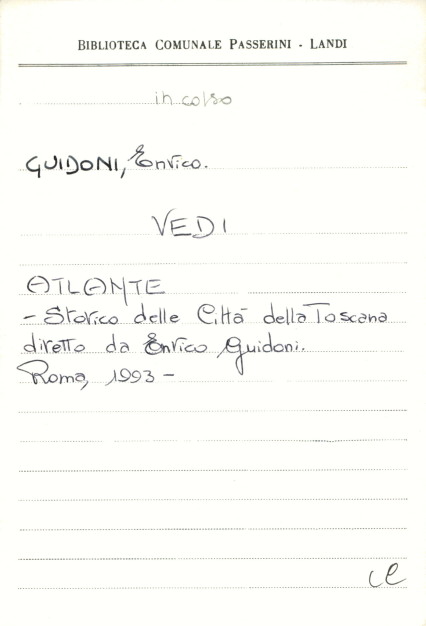 BIBLIOTECA COMUNALE PASSERINI - LANDI
in corso
GUIDONI, Enrico.
VEDI
ATLANTE
- Storico delle Città della Toscana
diretto da Enrico Guidoni.
Roma, 1993 -